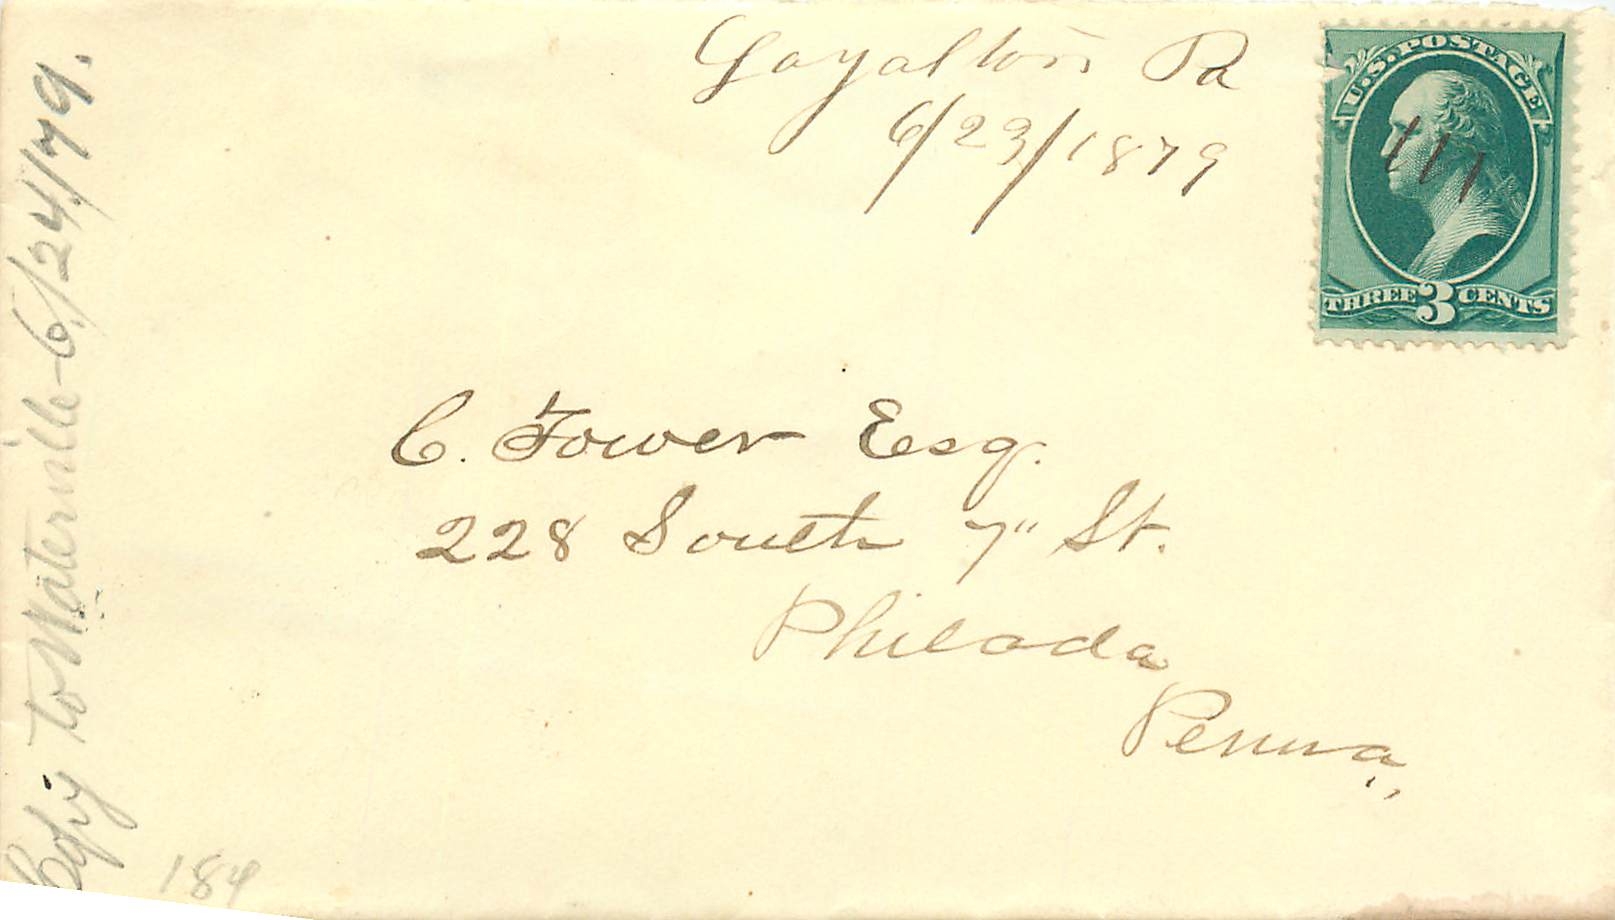 Loyalton Pa
6/23/1879
U.S. POSTAGE
THREE 3 CENTS
C. Tower Esq.
228 South 7" St.
Philada
Penna,
Copy to Waterville - 6/24/79.
184